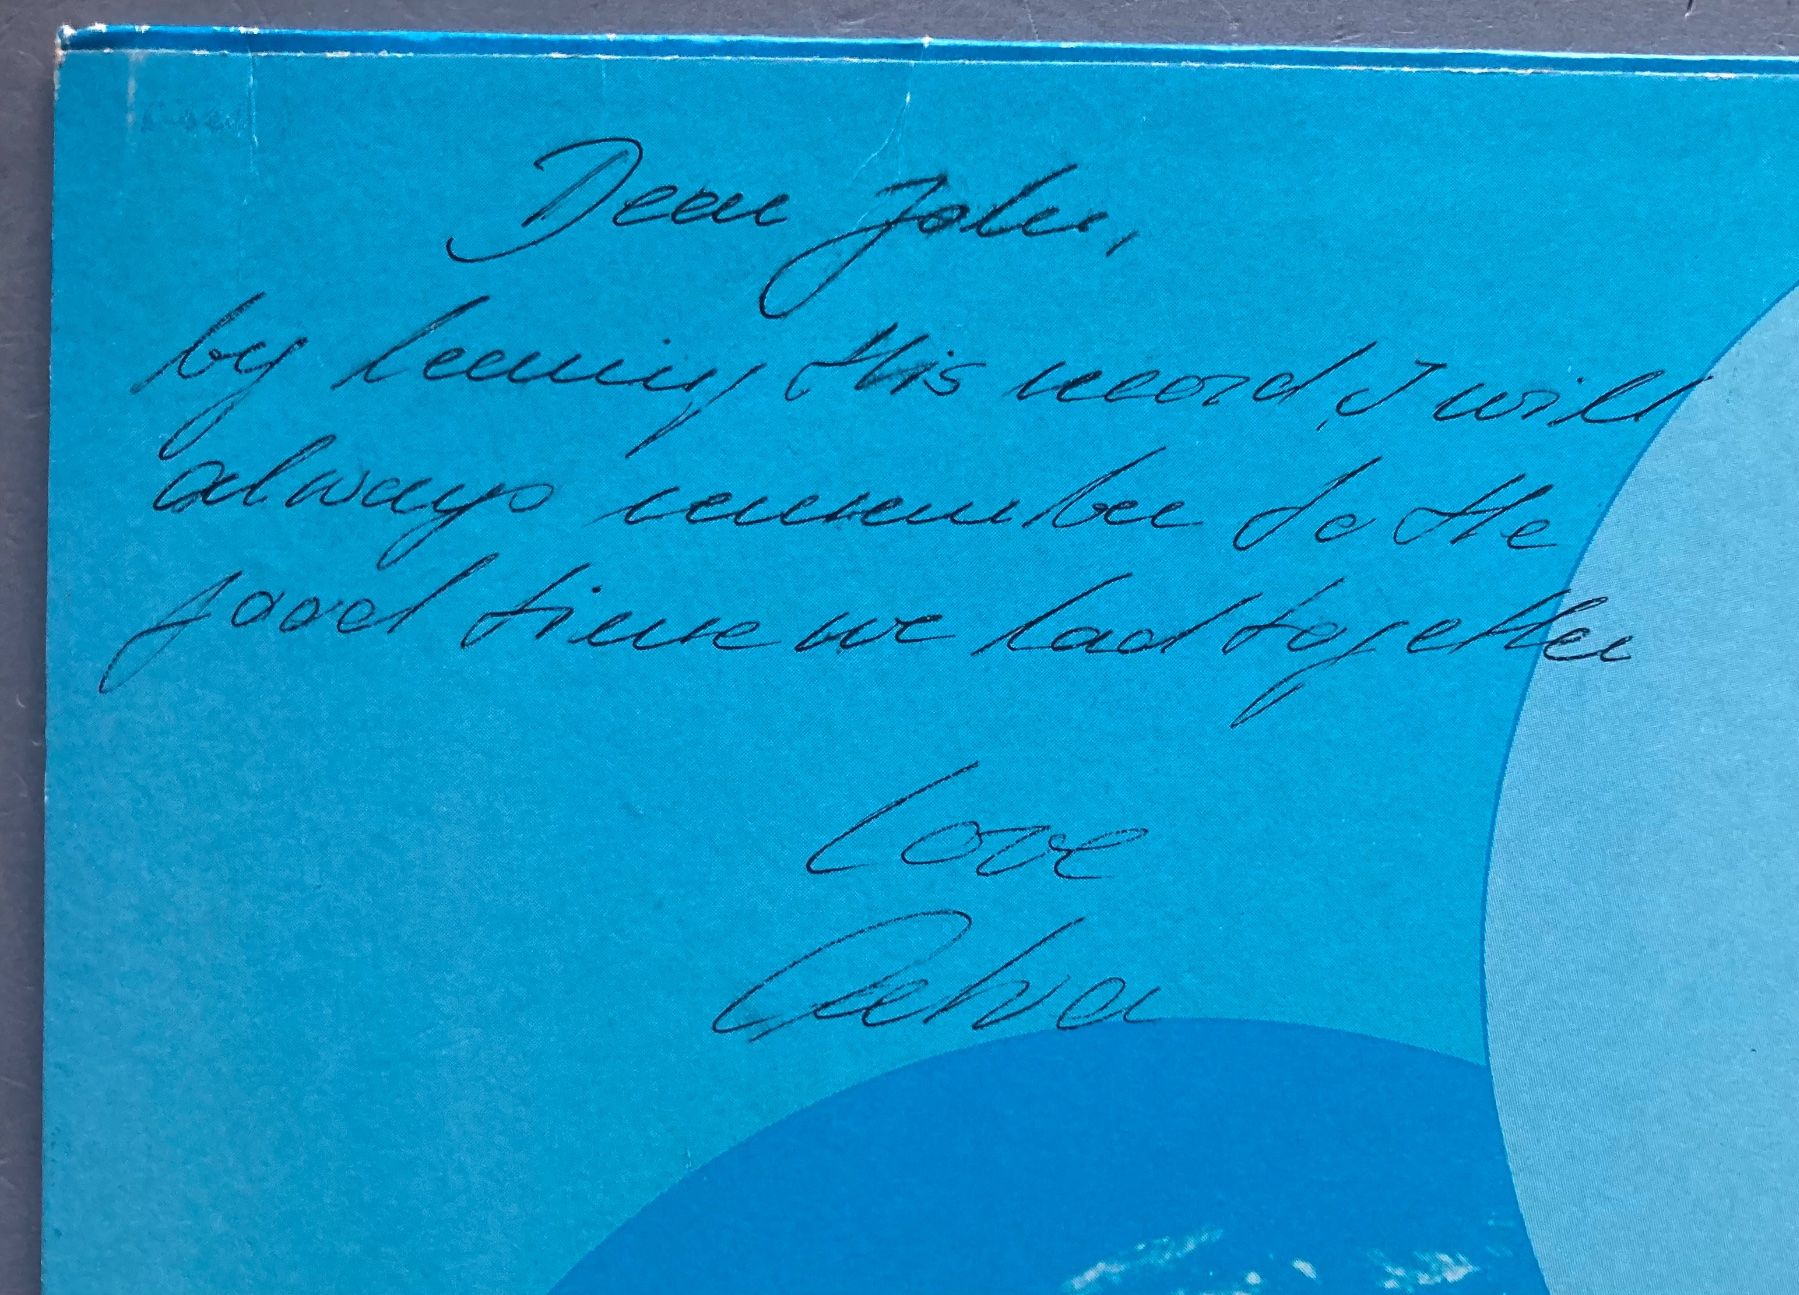 Dear John,
by hearing this record, I will
always remember to the
good time we had together
Love